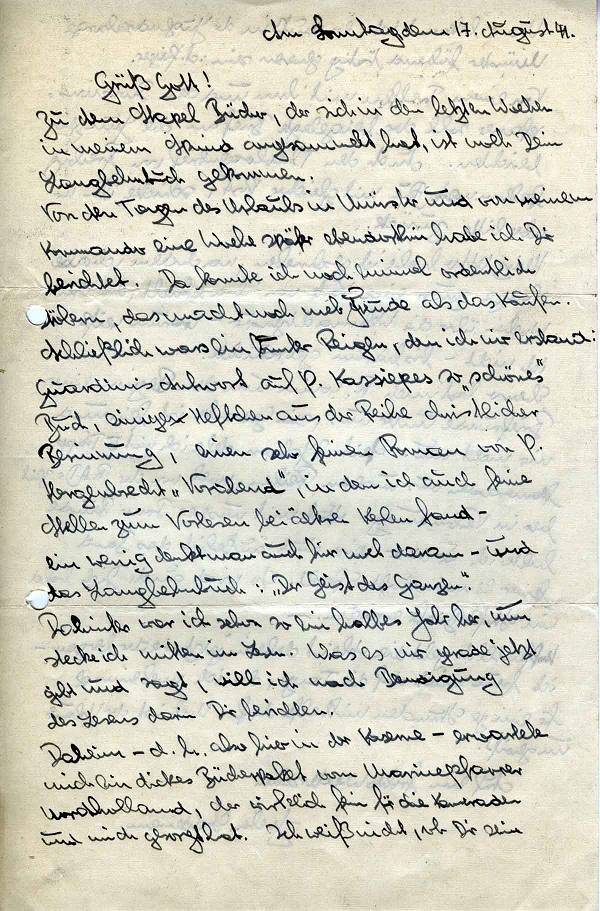 Am Sonntag dem 17. August 41.
Grüß Gott!
Zu dem Stapel Bücher, der sich in den letzten Wochen
in meinem Spind angesammelt hat, ist noch Dein
Langbehnbuch gekommen.
Von den Tagen des Urlaubs in Münster und von meinem
Kommando eine Woche später ebendorthin habe ich Dir
berichtet. Da konnte ich noch einmal ordentlich
stöbern, das macht noch mehr Freude als das Kaufen.
Schließlich wars ein bunter Reigen, den ich mir erstand:
Guardinis Antwort auf P. Kassiepes so „schönes"
Buch, einige Heftchen aus der Reihe christlicher
Besinnung, einen sehr feinen Roman von P.
„Vorabend", in dem ich auch feine
Stellen zum Vorlesen bei älteren Kerlen fand –
ein wenig denkt man auch hier noch daran – und
das Langbehnbuch: „Der Geist des Ganzen".
Dahinter war ich schon so ein halbes Jahr her, nun
stecke ich mitten im Lesen. Was es mir grade jetzt
gibt und sagt, will ich nach Beendigung
des Lesens darin Dir berichten.
Daheim – d. h. also hier in der Kaserne – erwartete
mich ein dickes Bücherpaket vom Marinepfarrer
, der wirklich fein für die Kameraden
und mich gesorgt hat. Ich weiß nicht, ob Dir sein